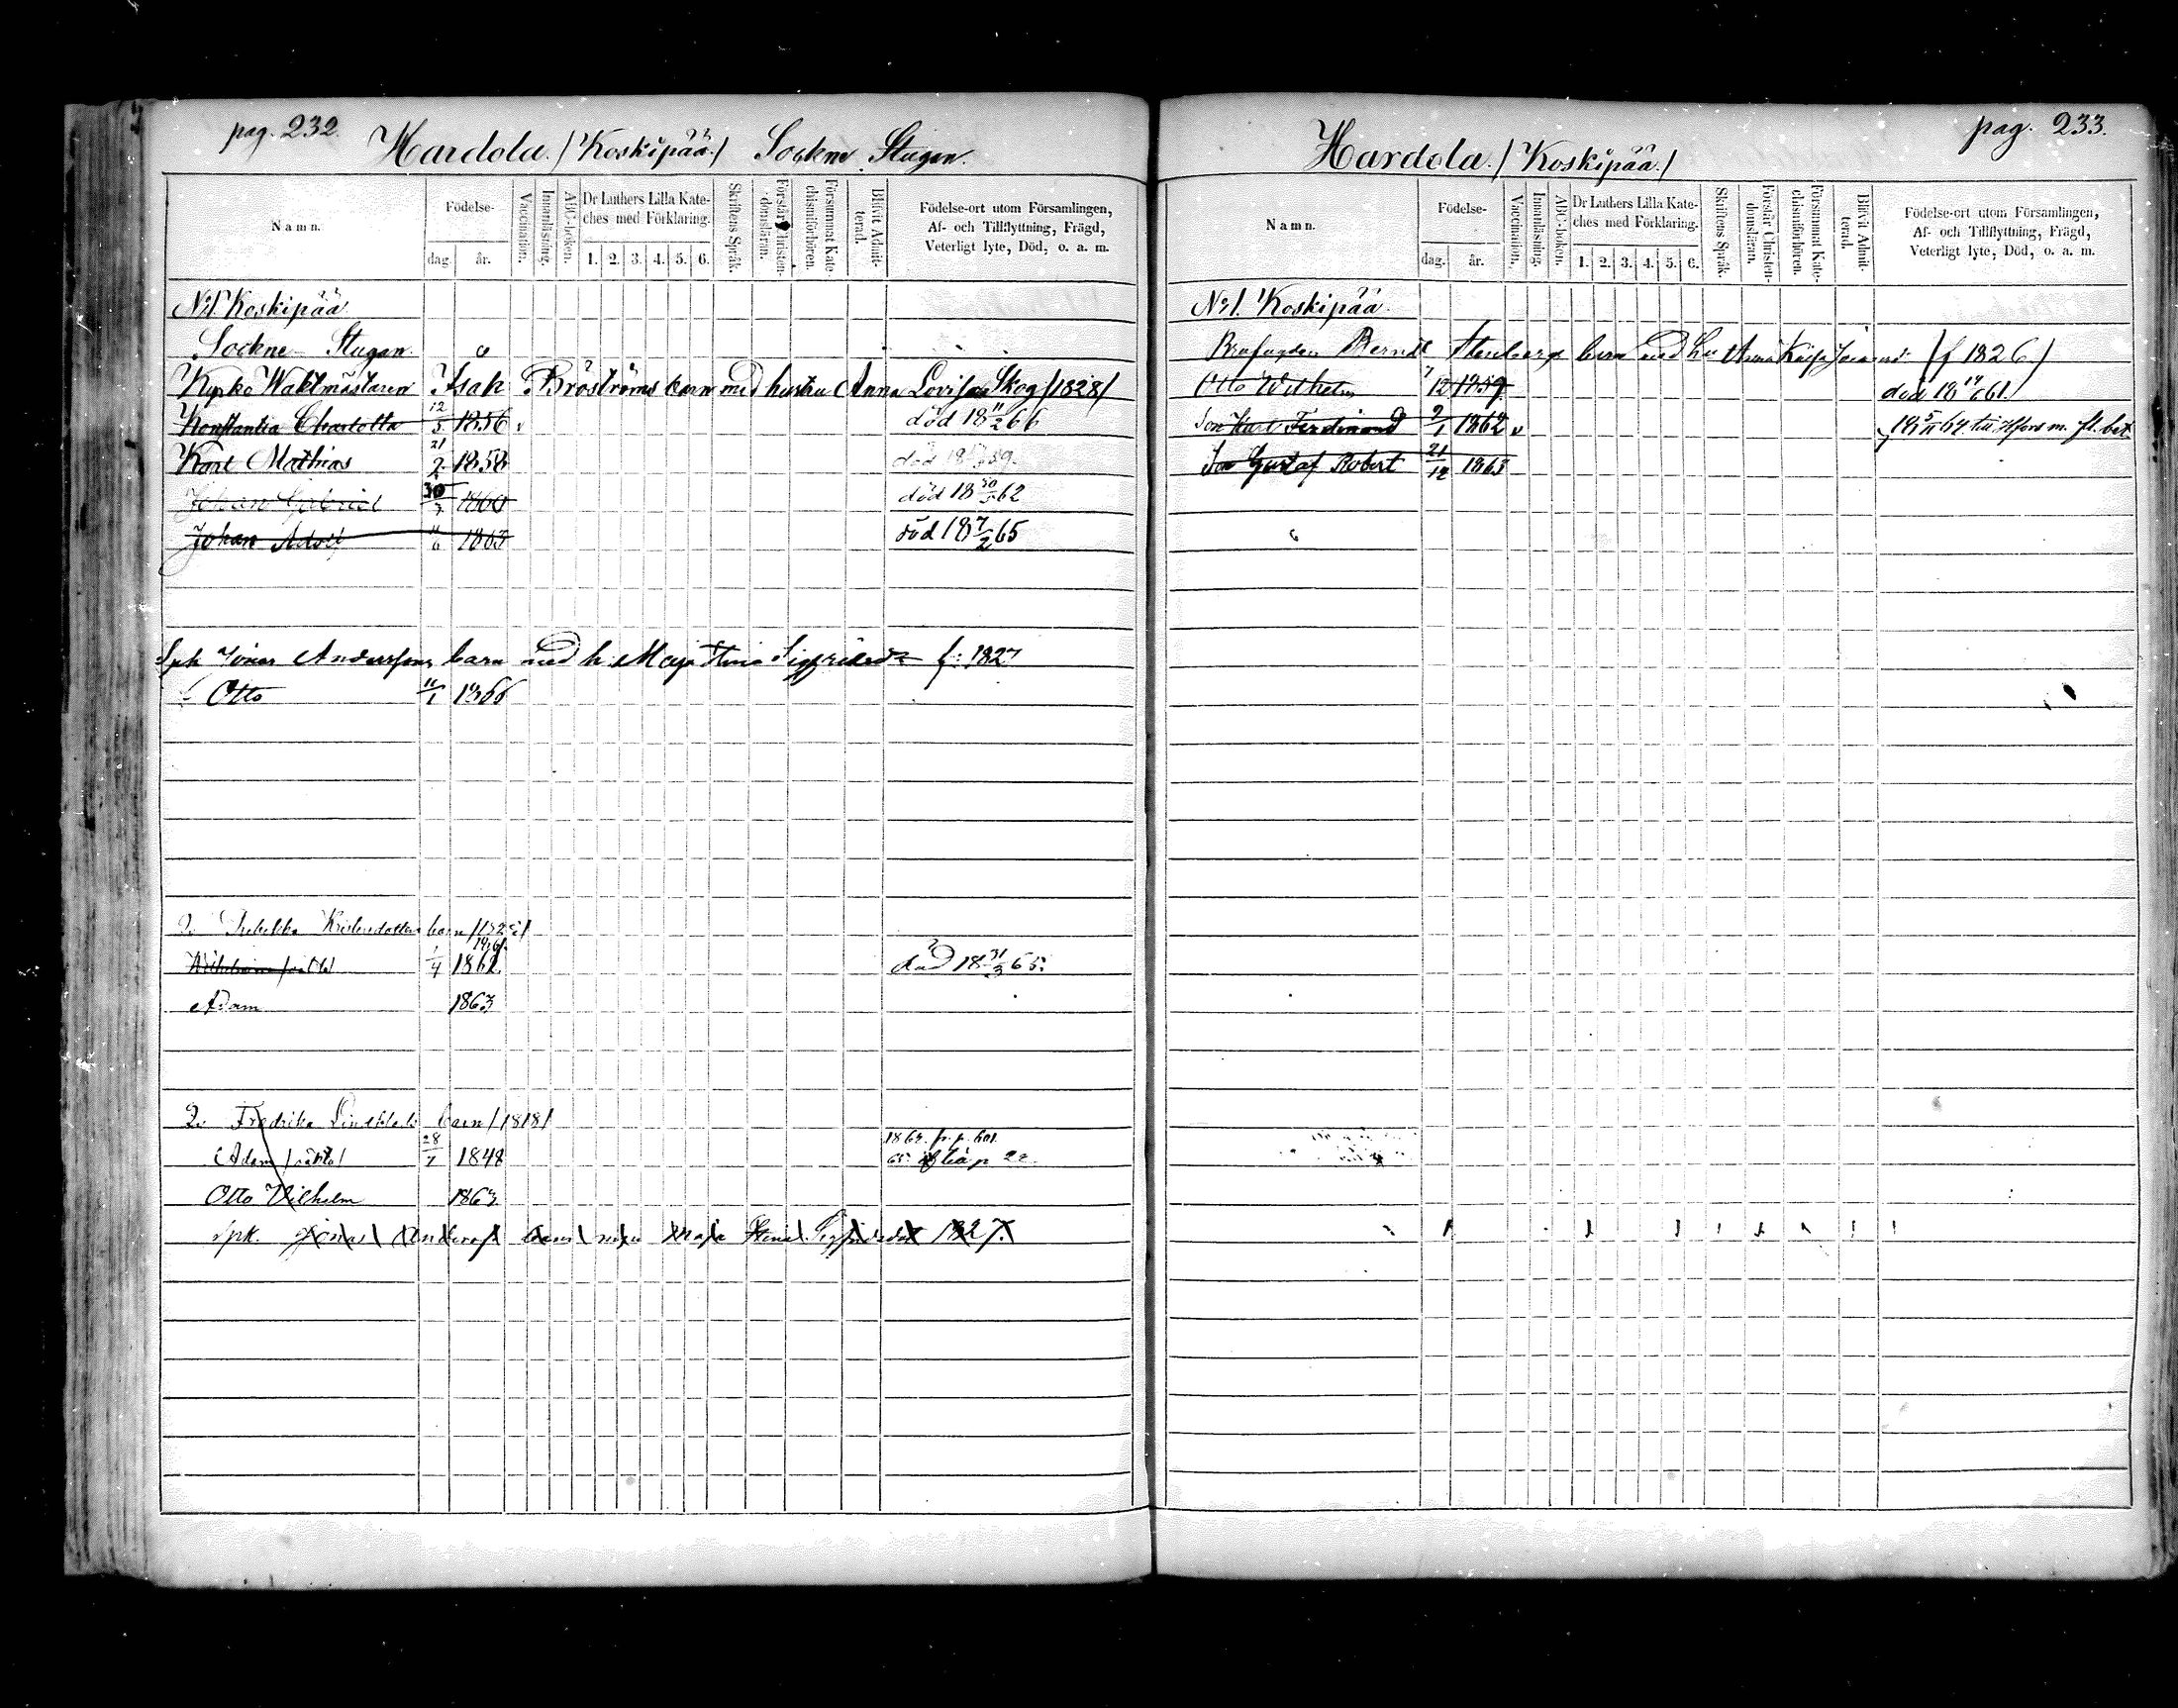 pag. 232.
Hardola. / Koskipää. / Sockne Stugan.
Namn.
Födelse-
dag.
år.
Vaccination.
Innanläsning.
ABC-boken.
Dr Luthers Lilla Kate-
ches med Förklaring.
1. 2. 3. 4. 5. 6.
Skriftens Språk.
Förstår Christen-
domsläran.
Försummat Kate-
chismiförhören.
Blifvit Admit-
terad.
Födelse-ort utom Församlingen,
Af- och Tillflyttning, Frägd,
Veterligt lyte, Död, o. a. m.
No 1 Koskipää
Sockne Stugan
Kyrko Waktmästaren Isak Broströms barn med hustru Anna Lovisa Skog /1828/
Konstantia Charlotta 12/5 1856 v död 18 11/2 66
Karl Mathias 21/2 1858 död 18 59.
Johan Gabriel 30/7 1860 död 18 62
Johan Adolf 11/6 1863 död 18 7/2 65
Sph Jonas Anderssons barn med h. Maja Stina Sigfridsd f: 1827
Otto 11/1 1866
barn
1861.
1/4 1862 död 18 31/3 65.
Adam 1863
Fredrika barn /1818/
Adam 28/7 1848
Otto Vilhelm 1863
Spk. Jonas barn Maja Stina 1827.
pag. 233.
Hardola. / Koskipää. /
Namn.
Födelse-
dag.
år.
Vaccination.
Innanläsning.
ABC-boken.
Dr Luthers Lilla Kate-
ches med Förklaring.
1. 2. 3. 4. 5. 6.
Skriftens Språk.
Förstår Christen-
domsläran.
Försummat Kate-
chismiförhören.
Blifvit Admit-
terad.
Födelse-ort utom Församlingen,
Af- och Tillflyttning, Frägd,
Veterligt lyte, Död, o. a. m.
No 1. Koskipää.
Berndt Stenbergs barn med hu Anna Kaisa (f 1826)
Otto Wilhelm 7/12 1859 död 18 61.
Son Karl Ferdinand 9/1 1862 v 18 5/11 64 till Hfors m. fl. bet
Son Gustaf Robert 21/12 1863